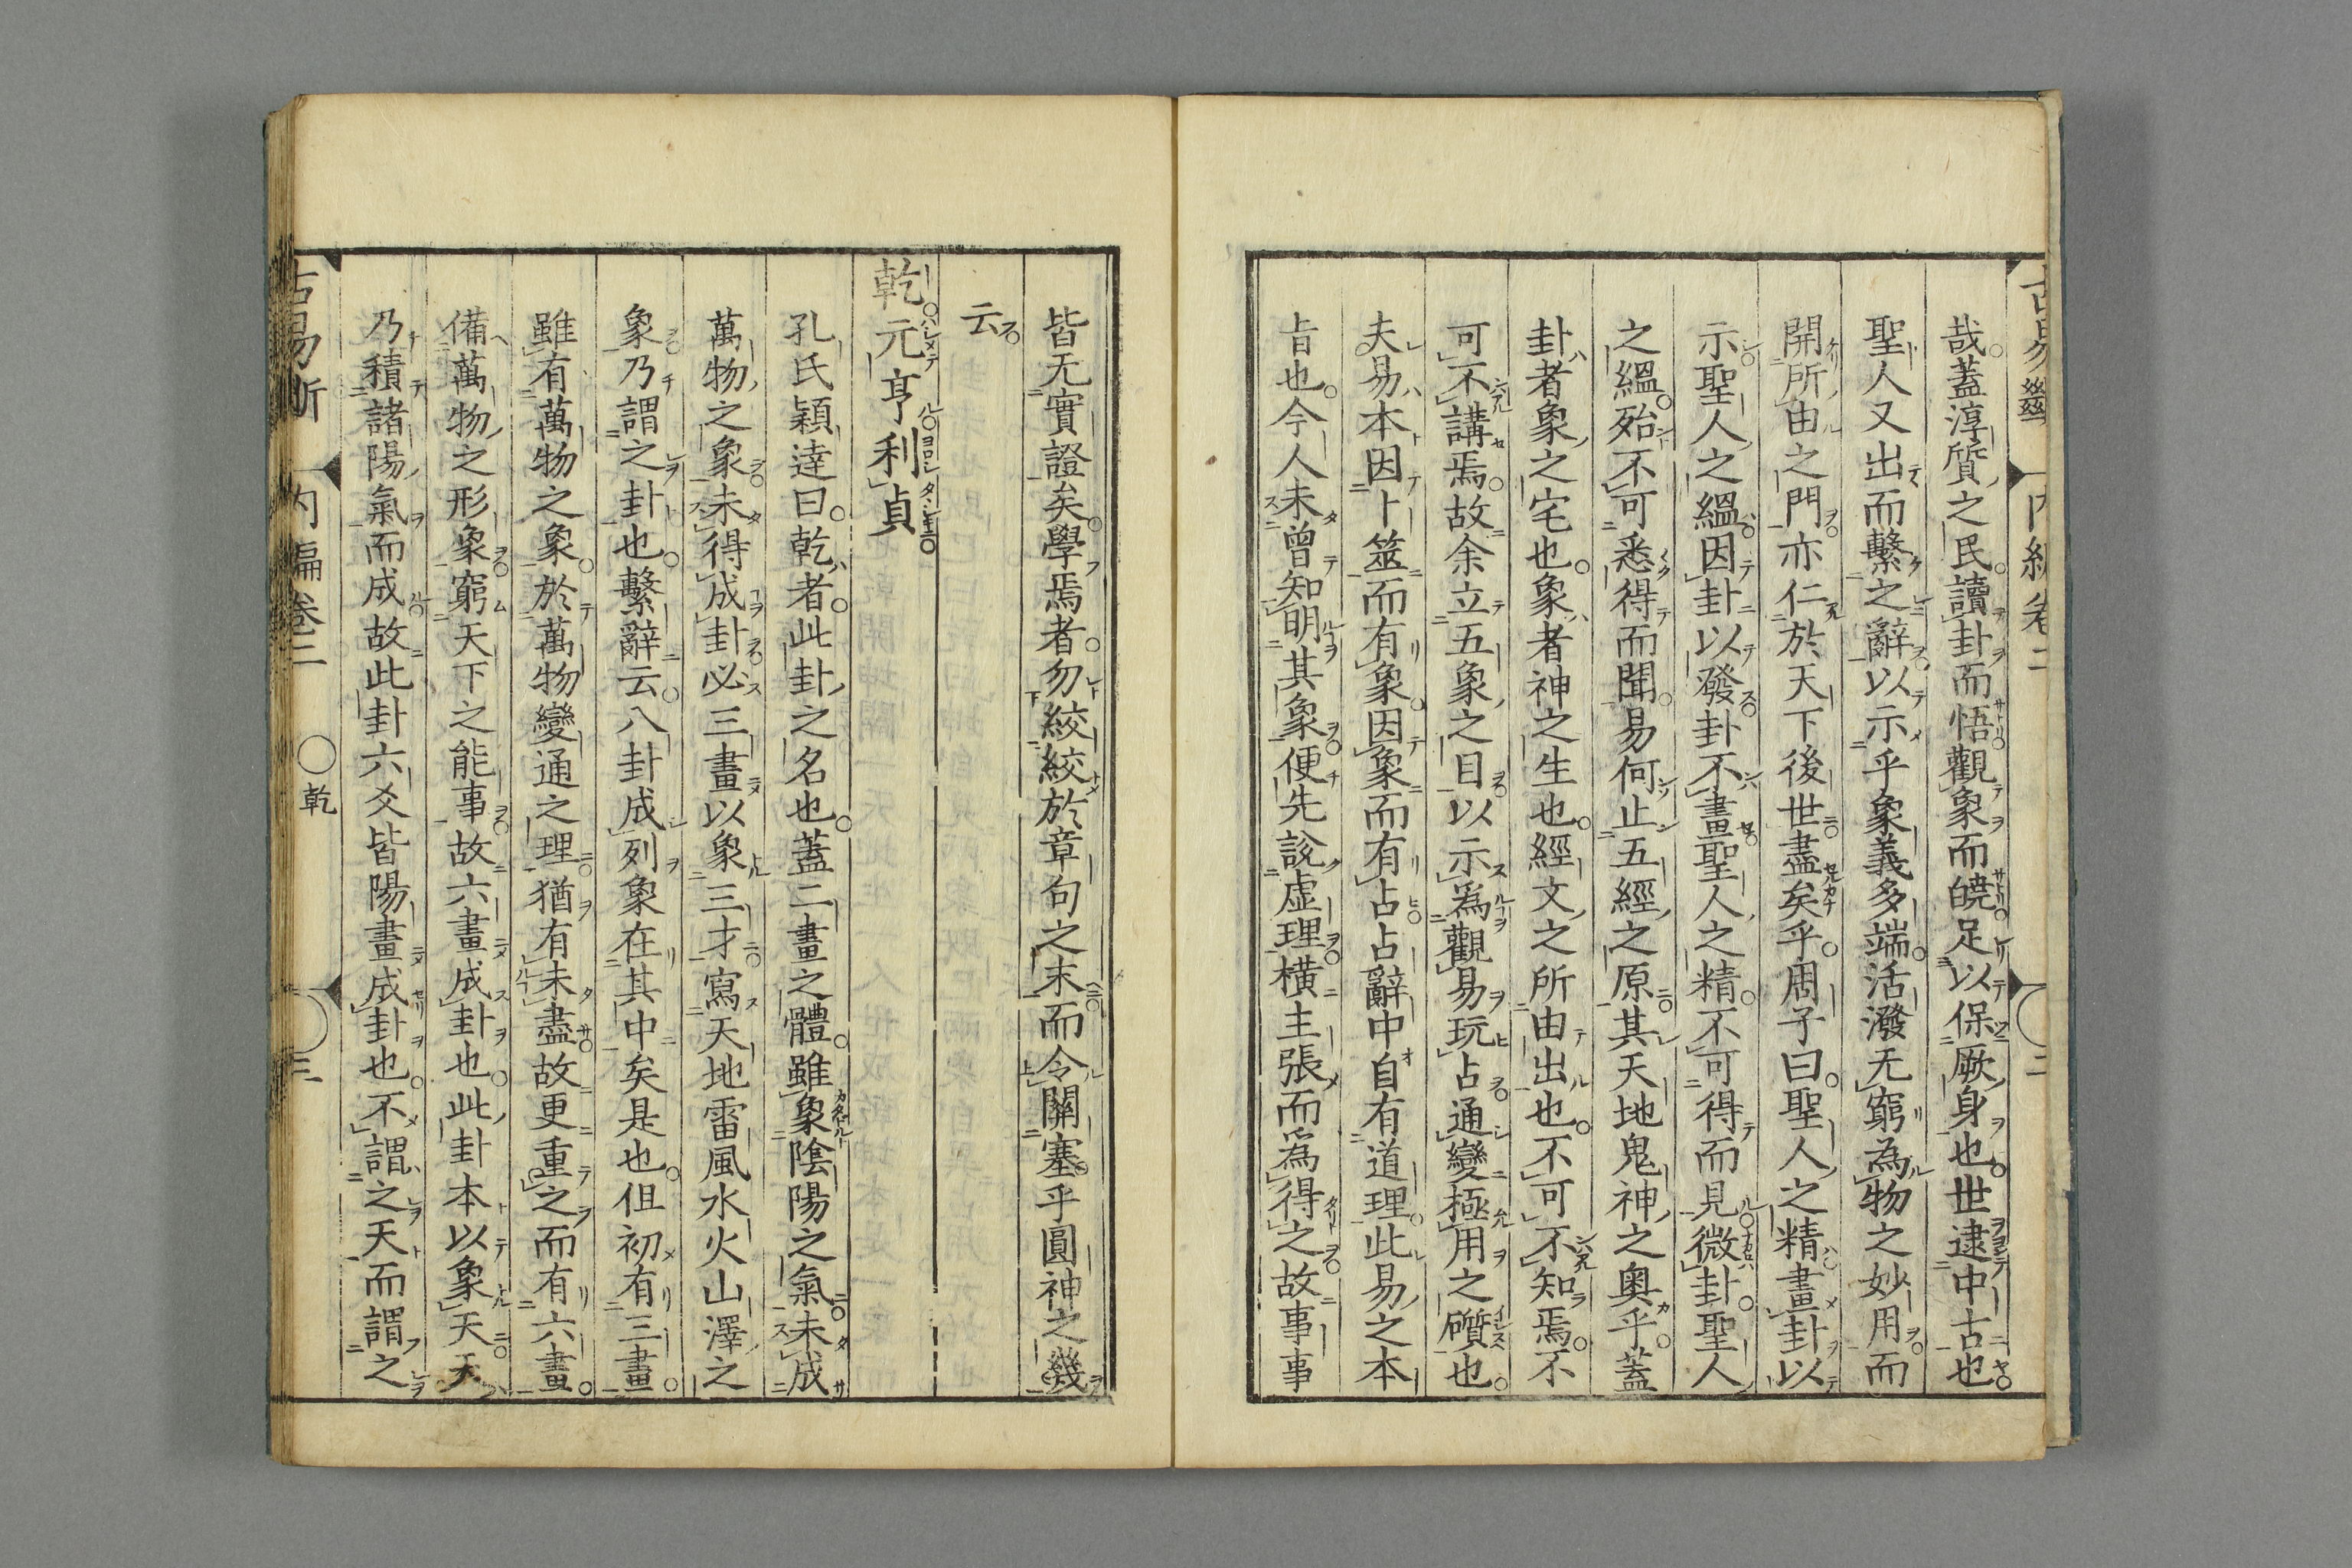 哉蓋淳質之民讀卦而悟觀象而皢足以保厥身也世逮中古也
聖人又出而繫之辭以示乎象義多端活潑无窮為物之妙用而
開所由之門亦仁於天下後世盡矣乎周子曰聖人之精畫卦以
示聖人之縕因卦以發卦不畫聖人之精不可得而見微卦聖人
之縕殆不可悉得而聞易何止五經之原其天地鬼神之奧乎蓋
卦者象之宅也象者神之生也經文之所由出也不可不知焉不
可不講焉故余立五象之目以示為觀易玩占通變極用之礩也
夫易本因卜筮而有象因象而有占占辭中自有道理此易之本
旨也今人未曾知明其象便先說虛理橫主張而為得之故事事
皆无實證矣學焉者勿絞絞於章句之末而令關塞乎圓神之幾
云
乾元亨利貞
孔氏穎達曰乾者此卦之名也蓋二畫之體雖象陰陽之氣未成
萬物之象未得成卦必三畫以象三才寫天地雷風水火山澤之
象乃謂之卦也繫辭云八卦成列象在其中矣是也但初有三畫
雖有萬物之象於萬物變通之理猶有未盡故更重之而有六畫
備萬物之形象窮天下之能事故六畫成卦也此卦本以象天天
乃積諸陽氣而成故此卦六爻皆陽畫成卦也不謂之天而謂之
古易斷 內編卷二 ○乾 三